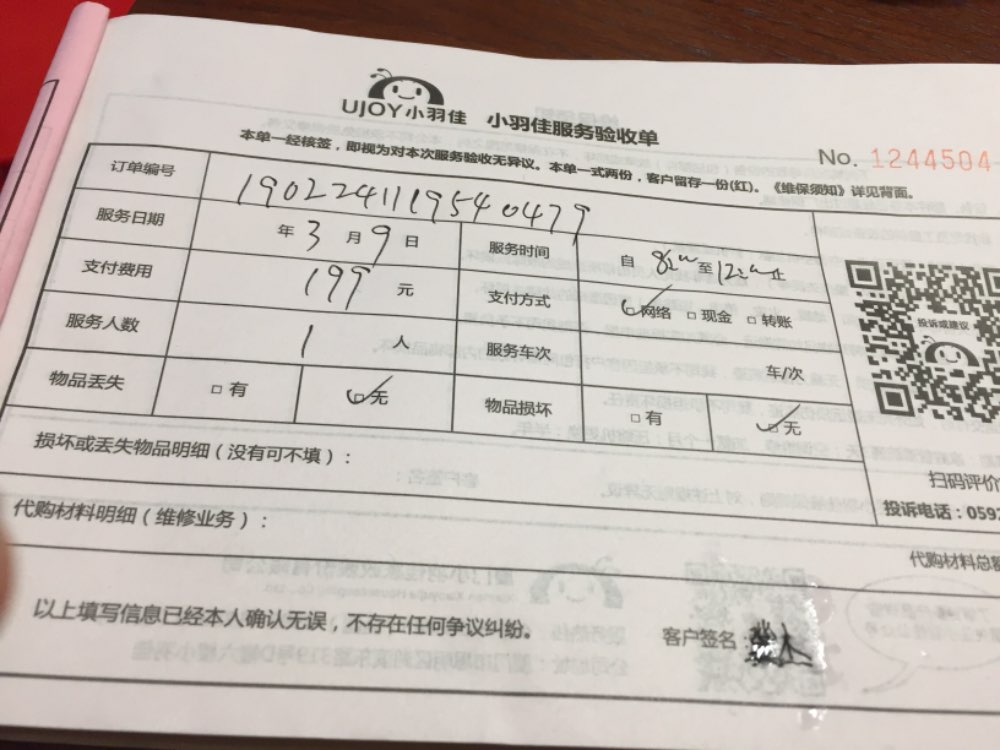 UJOY小羽佳 小羽佳服务验收单
No. 1244504
本单一经核签，即视为对本次服务验收无异议。本单一式两份，客户留存一份(红)。《维保须知》详见背面。
订单编号 1902241119540479
服务日期 年3月9日 服务时间 自 至 止
支付费用 199 元 支付方式 网络 现金 转账
服务人数 1 人 服务车次 车/次
物品丢失 有 无 物品损坏 有 无
投诉或建议
扫码评价
投诉电话：059
损坏或丢失物品明细（没有可不填）：
代购材料明细（维修业务）：
代购材料总
以上填写信息已经本人确认无误，不存在任何争议纠纷。
客户签名